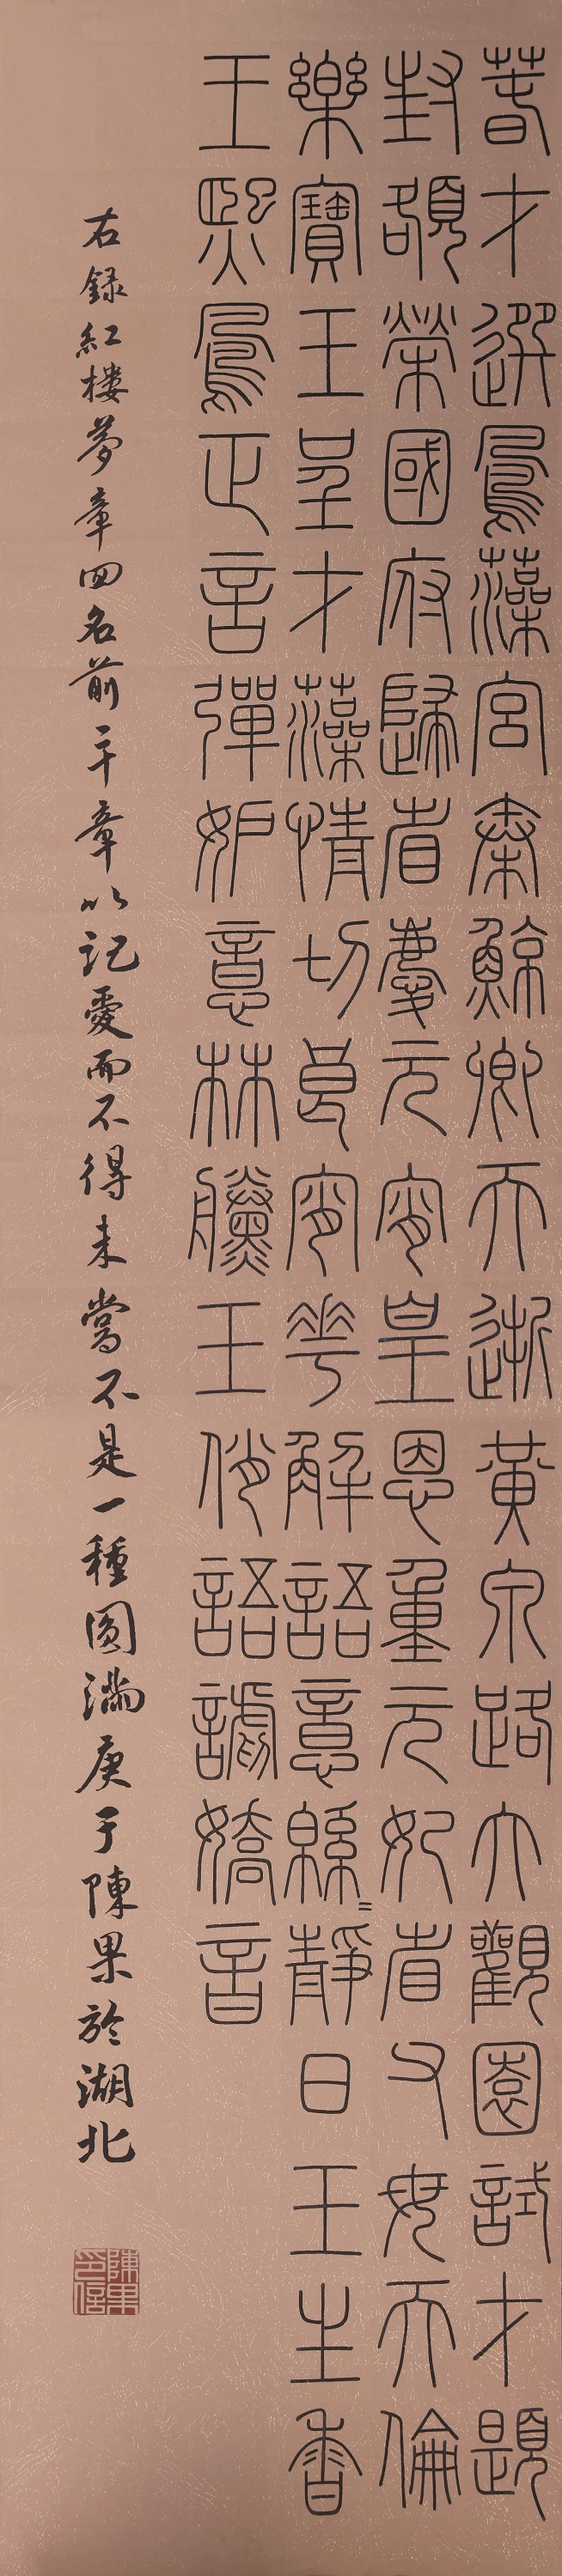 春才選鳳藻宮秦鯨卿夭逝黃泉路大觀園試才題
封額榮國府歸省慶元宵皇恩重元妃省父母天倫
樂寶玉呈才藻情切良宵花解語意緜〻靜日玉生香
王熙鳳正言彈妒意林黱玉俏語謔嬌音
右錄紅樓夢章回名前干章以記愛而不得未嘗不是一種圓滿庚子陳果於湖北
陳果印信